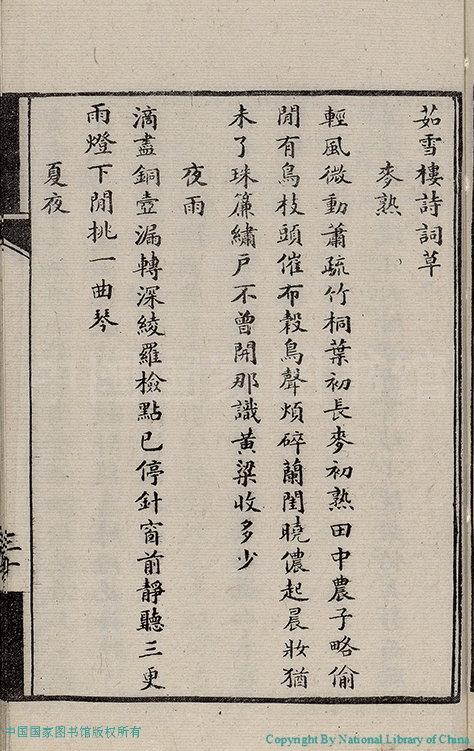 茹雪樓詩詞草
麥熟
輕風微動蕭疏竹桐葉初長麥初熟田中農子略偷
閒有鳥枝頭催布穀鳥聲煩碎蘭閨曉儂起晨妝猶
未了珠簾繡戶不曾開那識黃粱收多少
夜雨
滴盡銅壺漏轉深綾羅檢點已停針窗前靜聽三更
雨燈下閒挑一曲琴
夏夜
三十
中国国家图书馆版权所有
Copyright By National Library of China